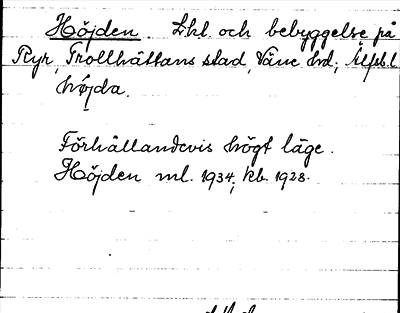 Höjden. Lhl. och bebyggelse på
Ryr, Trollhättans stad, Väne hd, Älfsb.l
höjda.
Förhållandevis högt läge.
Höjden ml. 1934, kb. 1928.